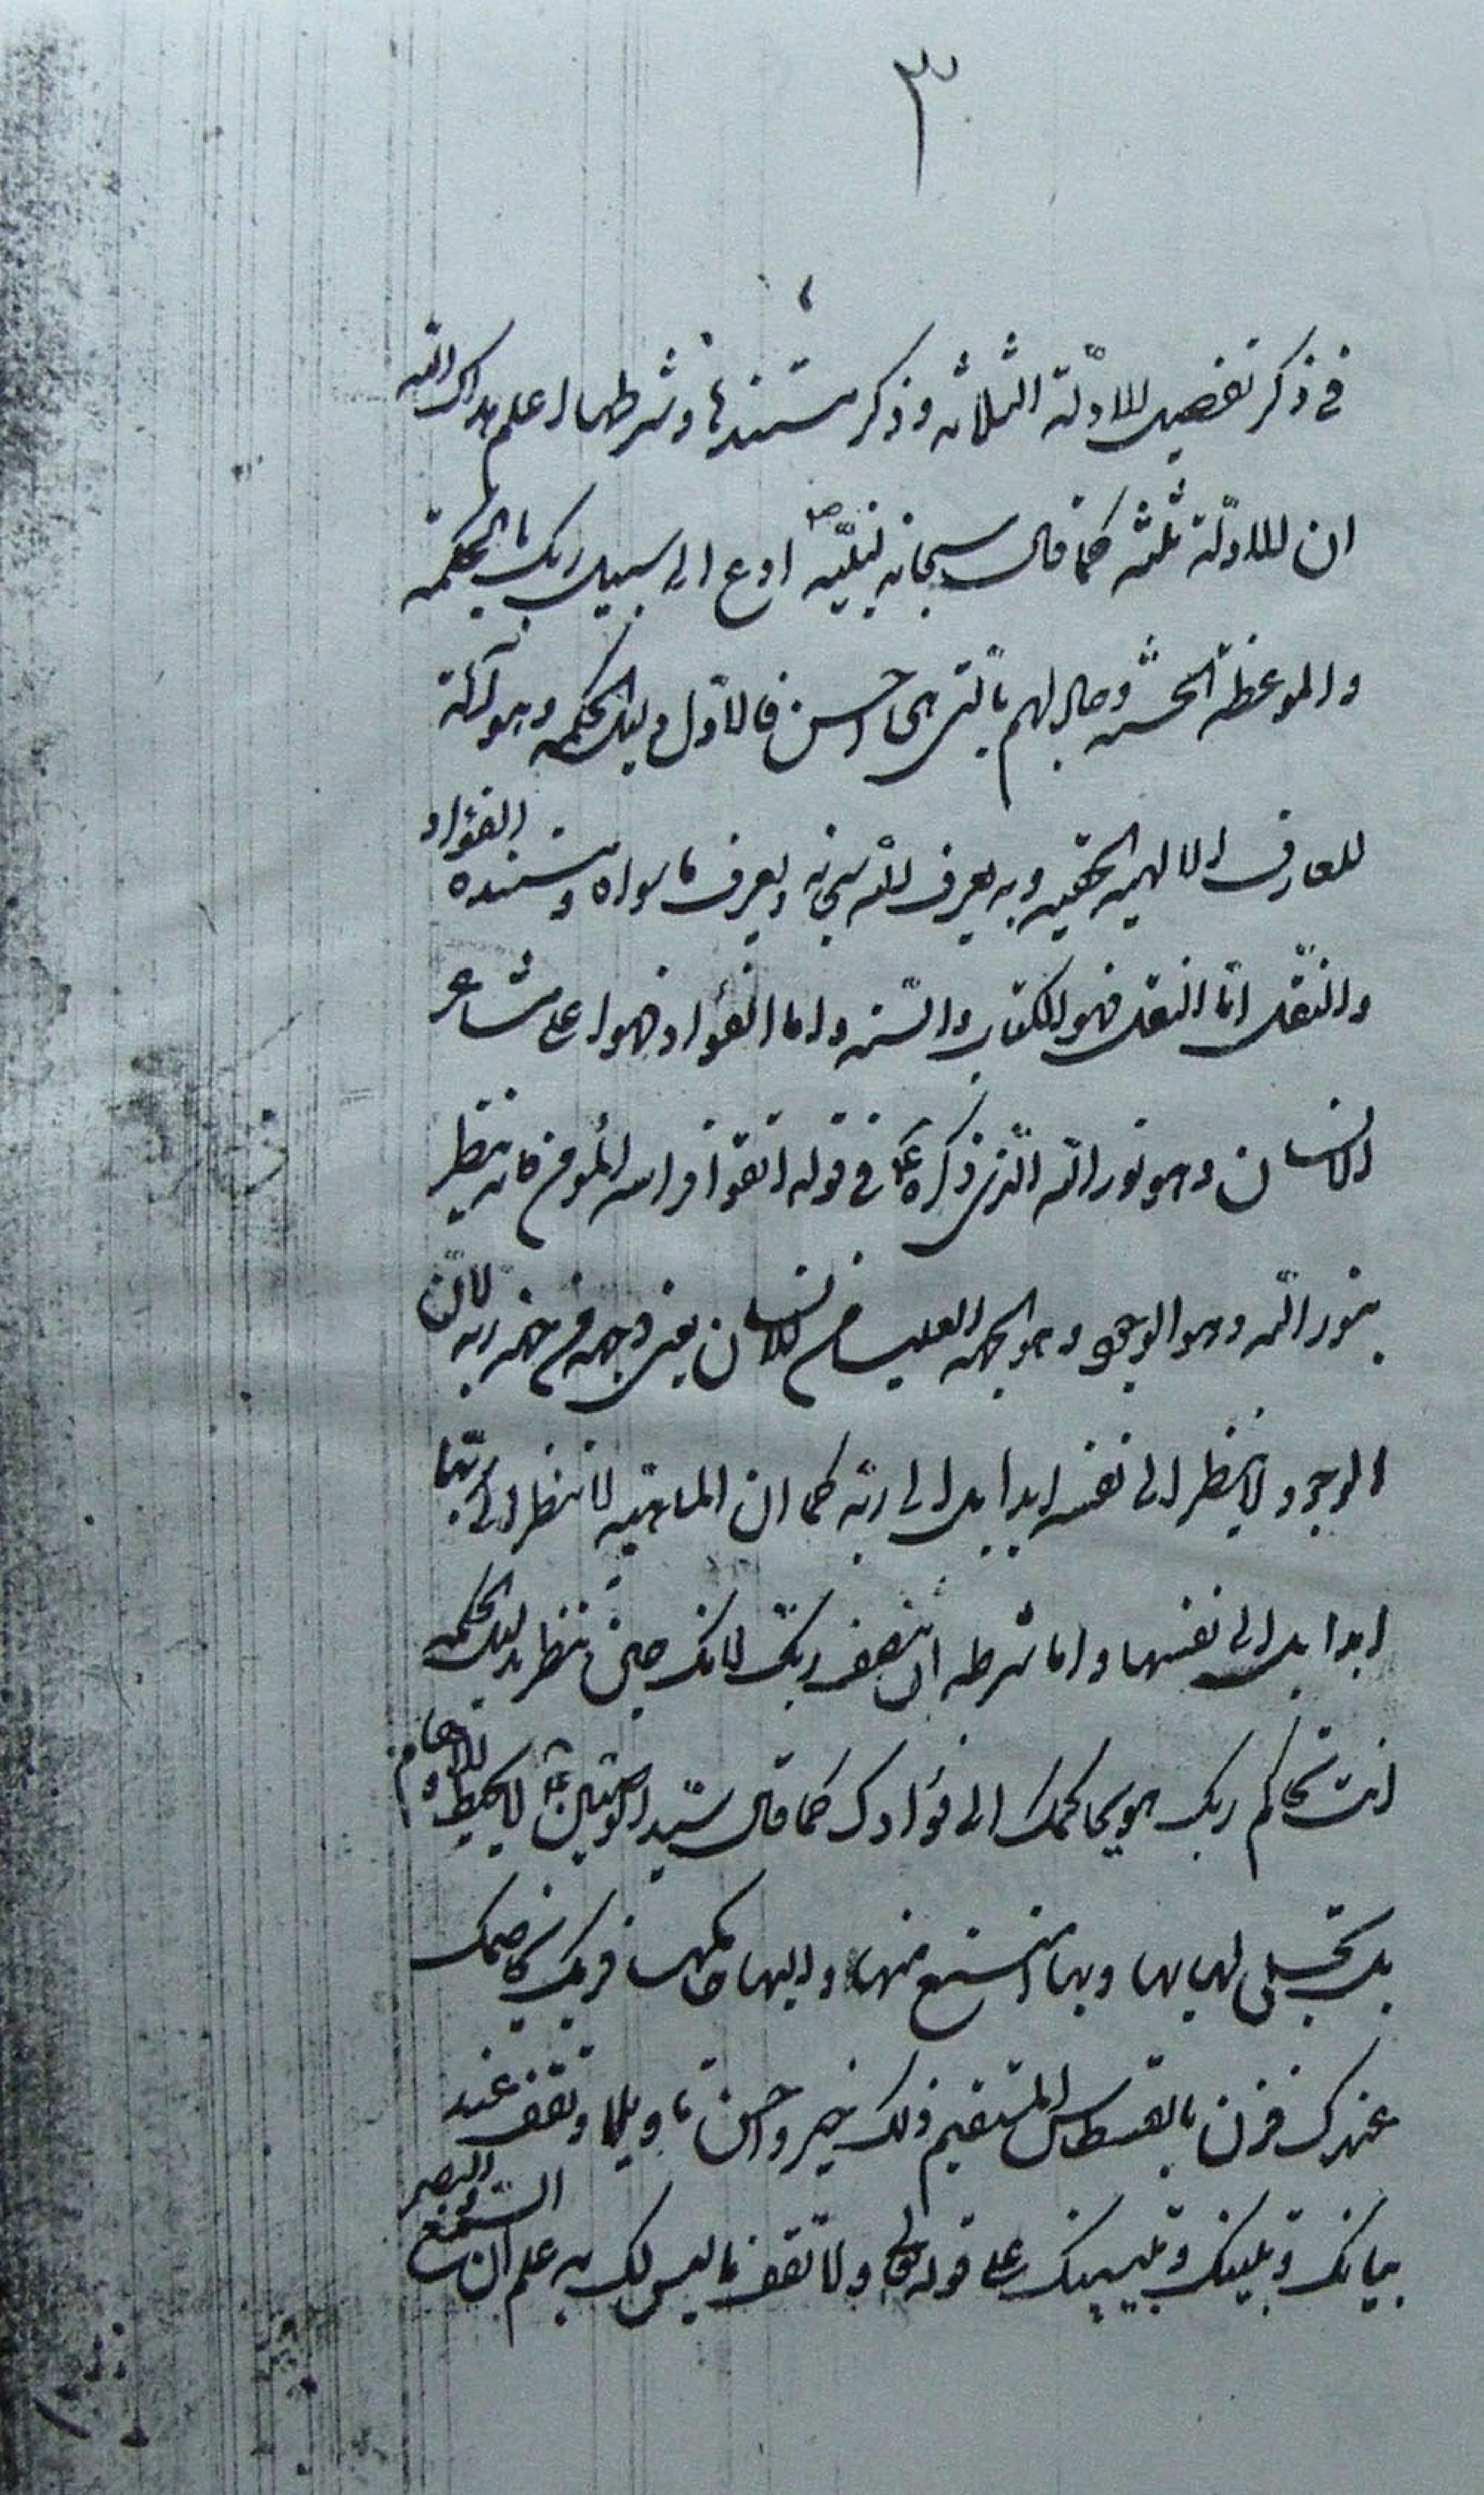 ٣
في ذكر تفصيل الادلّة الثلاثه وذكر مستندها وشرطها اعلم هداك الله
ان الادلّة ثلثه كما قال سبحانه لنبيّه ص ادع الى سبيل ربك بالحكمة
والموعظة الحسنه وجادلهم بالتى هى احسن فالاوّل دليل الحكمه وهو آلة
للمعارف الالهيه الحقيه وبه يعرف الله سبحانه ويعرف ما سواه ومستنده الفؤاد
والنقل امّا النقل فهو الكتاب والسّنه واما الفؤاد فهو اعلى مشاعر
الانسان وهو نور الله الّذى ذكره ع في قوله اتقوا فراسه المؤمن فانه ينظر
بنور الله وهو الوجود وهو الجهه العليا من الانسان يعنى وجهه من جهه ربه لانّ
الوجود لا ينظر الى نفسه ابدا بل الى ربّه كما ان الماهيّه لا تنظر الى ربّها
ابدا بل الى نفسها واما شرطه ان تنصف ربّك لانك حين تنظر بدليل الحكمه
انت تحاكم ربك وهو يحاكمك الى فؤادك كما قال سيّد الوصيّين ع لا تحيط به الاوهام
بل تجلى لها بها وبها امتنع منها واليها حاكمها فربك يخاصمك
عندك فزن بالقسطاس المستقيم ذلك خير واحسن تاويلا وتقف عند
بيانك وتبينك وتبيينك على قوله تعالى ولا تقف ما ليس لك به علم ان السّمع والبصر